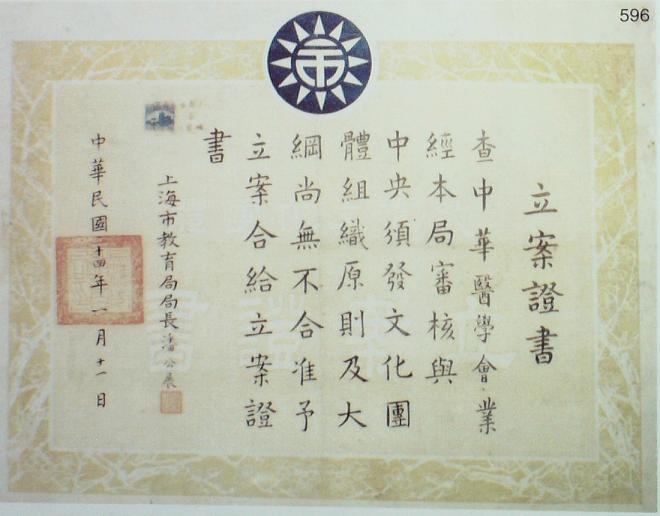 596
立案證書
查中華醫學會業
經本局審核與
中央須發文化團
體組織原則及大
綱尚無不合准予
立案合給立案證
書
上海市教育局局長潘公展
中華民國二十四年一月十一日